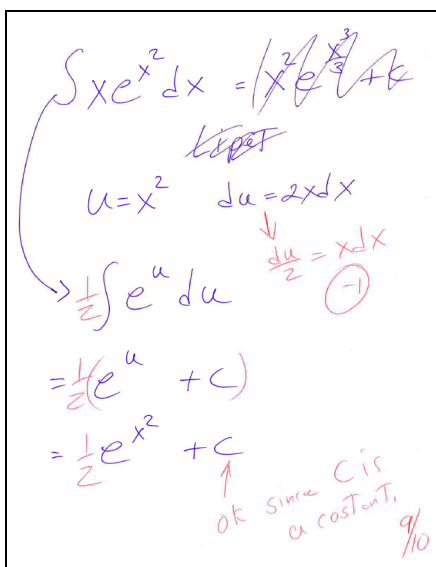 ∫xe^{x^2}dx = (x^2 e^{x^3/3}) + c
u = x^2 du = 2xdx
du/2 = xdx
-1
1/2 ∫e^u du
= 1/2(e^u + c)
= 1/2 e^{x^2} + c
ok since C is
a costent.
9/10